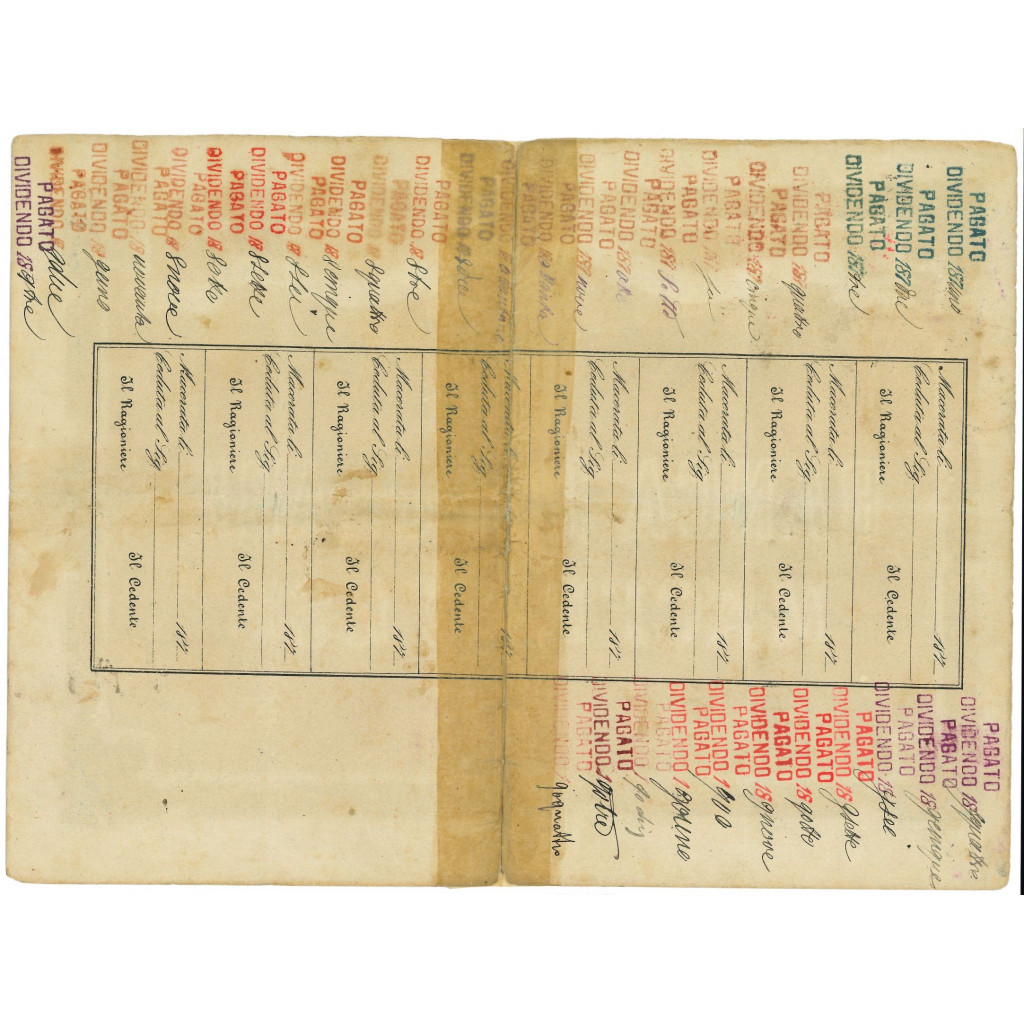 PAGATO
DIVIDENDO 187uno
PAGATO
DIVIDENDO 187due
PAGATO
DIVIDENDO 187tre
PAGATO
DIVIDENDO 187quattro
PAGATO
DIVIDENDO 187cinque
PAGATO
DIVIDENDO 187sei
PAGATO
DIVIDENDO 187
PAGATO
DIVIDENDO 187otto
PAGATO
DIVIDENDO 187nove
DIVIDENDO
PAGATO
DIVIDENDO
PAGATO
DIVIDENDO 188due
PAGATO
DIVIDENDO 188tre
PAGATO
DIVIDENDO 188quattro
PAGATO
DIVIDENDO 188cinque
PAGATO
DIVIDENDO 188sei
PAGATO
DIVIDENDO 188sette
PAGATO
DIVIDENDO 188otto
PAGATO
DIVIDENDO 188nove
PAGATO
DIVIDENDO 18novanta
PAGATO
DIVIDENDO 189uno
PAGATO
DIVIDENDO 189due
PAGATO
DIVIDENDO 189tre
Macerata li 187
Ceduta al Sig.
Il Ragioniere Il Cedente
Macerata li 187
Ceduta al Sig.
Il Ragioniere Il Cedente
Macerata li 187
Ceduta al Sig.
Il Ragioniere Il Cedente
Macerata li 187
Ceduta al Sig.
Il Ragioniere Il Cedente
Macerata li 187
Ceduta al Sig.
Il Ragioniere Il Cedente
Macerata li 187
Ceduta al Sig.
Il Ragioniere Il Cedente
Macerata li 187
Ceduta al Sig.
Il Ragioniere Il Cedente
Macerata li 187
Ceduta al Sig.
Il Ragioniere Il Cedente
PAGATO
DIVIDENDO 189quattro
PAGATO
DIVIDENDO 189cinque
PAGATO
DIVIDENDO 189sei
PAGATO
DIVIDENDO 189sette
PAGATO
DIVIDENDO 189otto
PAGATO
DIVIDENDO 189nove
PAGATO
DIVIDENDO 1900
PAGATO
DIVIDENDO 190uno
PAGATO
DIVIDENDO
PAGATO
DIVIDENDO 190tre
PAGATO
DIVIDENDO 190quattro